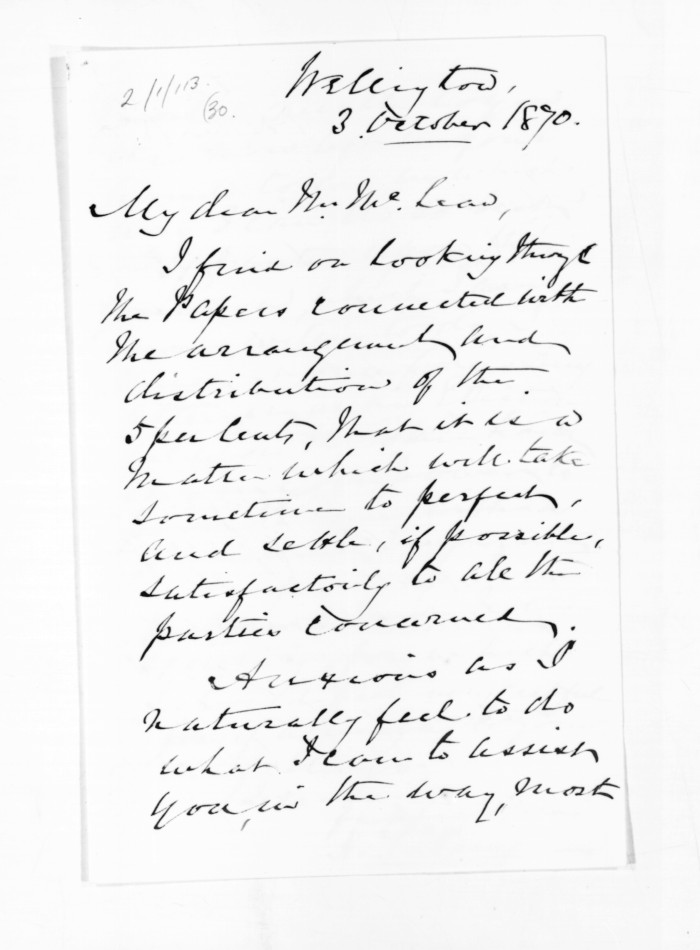 2/1/113
(30.
Wellington,
3. October 1870.
My dear Mr. McLean,
I find on looking through
the Papers connected with
the arrangement and
distribution of the
5 per Cents, that it is a
matter which will take
sometime to perfect,
and settle, if possible,
satisfactorily to all the
parties concerned.
Anxious as I
naturally feel to do
what I can to assist
you, in the way, most